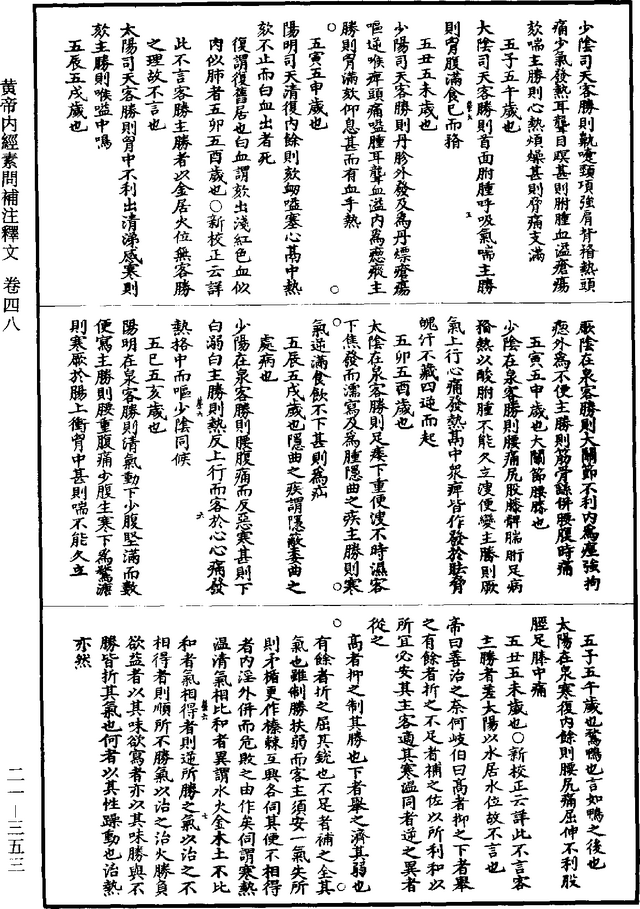 黄帝内經素問補注釋文　卷四八
少陰司天客勝則鼽嚏頸項強肩背瞀熱頭
痛少氣發熱耳聾目瞑甚則胕腫血溢瘡瘍
欬喘主勝則心熱煩燥甚則脅痛支滿
五子五午歲也
太陰司天客勝則首面胕腫呼吸氣喘主勝
則胷腹滿食已而瞀
五丑五未歲也
少陽司天客勝則丹胗外發及為丹熛瘡瘍
嘔逆喉痺頭痛嗌腫耳聾血溢內為瘛瘲主
勝則胷滿欬仰息甚而有血手熱
五寅五申歲也
陽明司天清復內餘則欬衄嗌塞心鬲中熱
欬不止而白血出者死
復謂復舊居也白血謂欬出淺紅色血似
肉似肺者五卯五酉歲也○新校正云詳
此不言客勝主勝者以金居火位無客勝
之理故不言也
太陽司天客勝則胷中不利出清涕感寒則
欬主勝則喉嗌中鳴
五辰五戌歲也
厥陰在泉客勝則大關節不利內為痙強拘
瘛外為不便主勝則筋骨繇併腰腹時痛
五寅五申歲也大關節腰膝也
少陰在泉客勝則腰痛尻股膝髀腨胻足病
瞀熱以酸胕腫不能久立溲便變主勝則厥
氣上行心痛發熱鬲中衆痺皆作發於胠脅
魄汗不藏四逆而起
五卯五酉歲也
太陰在泉客勝則足痿下重便溲不時濕客
下焦發而濡寫及為腫隱曲之疾主勝則寒
氣逆滿食飲不下甚則為疝
五辰五戌歲也隱曲之疾謂隱蔽委曲之
處病也
少陽在泉客勝則腰腹痛而反惡寒甚則下
白溺白主勝則熱反上行而客於心心痛發
熱格中而嘔少陰同候
五巳五亥歲也
陽明在泉客勝則清氣動下少腹堅滿而數
便寫主勝則腰重腹痛少腹生寒下為鶩溏
則寒厥於腸上衝胷中甚則喘不能久立
五子五午歲也鶩鴨也言如鴨之後也
太陽在泉寒復內餘則腰尻痛屈伸不利股
脛足膝中痛
五丑五未歲也○新校正云詳此不言客
主勝者蓋太陽以水居水位故不言也
帝曰善治之柰何岐伯曰高者抑之下者舉
之有餘者折之不足者補之佐以所利和以
所宜必安其主客適其寒溫同者逆之異者
從之
高者抑之制其勝也下者舉之濟其弱也
有餘者折之屈其銳也不足者補之全其
氣也雖制勝扶弱而客主須安一氣失所
則矛楯更作榛棘互興各伺其便不相得
者內淫外併而危敗之由作矣伺謂寒熱
溫清氣相比和者異謂水火金木土不比
和者氣相得者則逆所勝之氣以治之不
相得者則順所不勝氣以治之治火勝負
欲益者以其味欲寫者亦以其味勝與不
勝皆折其氣也何者以其性躁動也治熱
亦然
二一—三五三